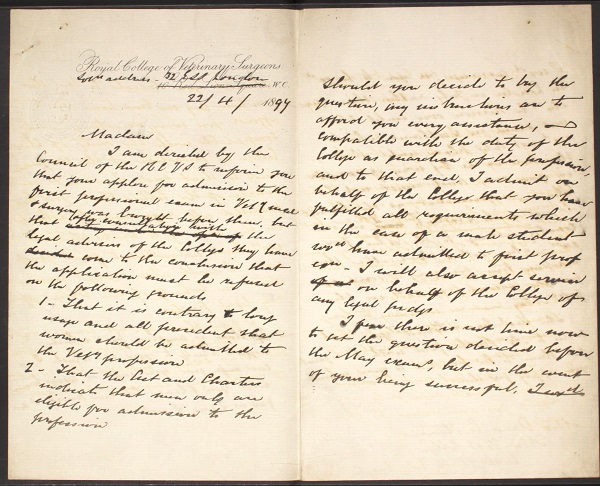 Royal College of Veterinary Surgeons
address - London
W.C.
22/4/ 1897
Madam
I am directed by the
Council of the RCVS to inform you
that your applon for admission to the
first professional exam in Vety med
& surgery was brought before them, but
that after consulting with the
legal advisers of the College they have
come to the conclusion that
the application must be refused
on the following grounds
1 - That it is contrary to long
usage and all precedent that
women should be admitted to
the Vety profession
2 - That the Act and Charters
indicate that men only are
eligible for admission to the
profession
Should you decide to try the
question, my instructions are to
afford you every assistance,
compatible with the duty of the
College as guardian of the profession,
and to that end, I admit on
behalf of the College that you have
fulfilled all requirements which
in the case of a male student
wd have admitted to first prof
exn - I will also accept service
on behalf of the College of
any legal
I fear there is not time now
to get the question decided before
the May exam, but in the event
of your being successful,